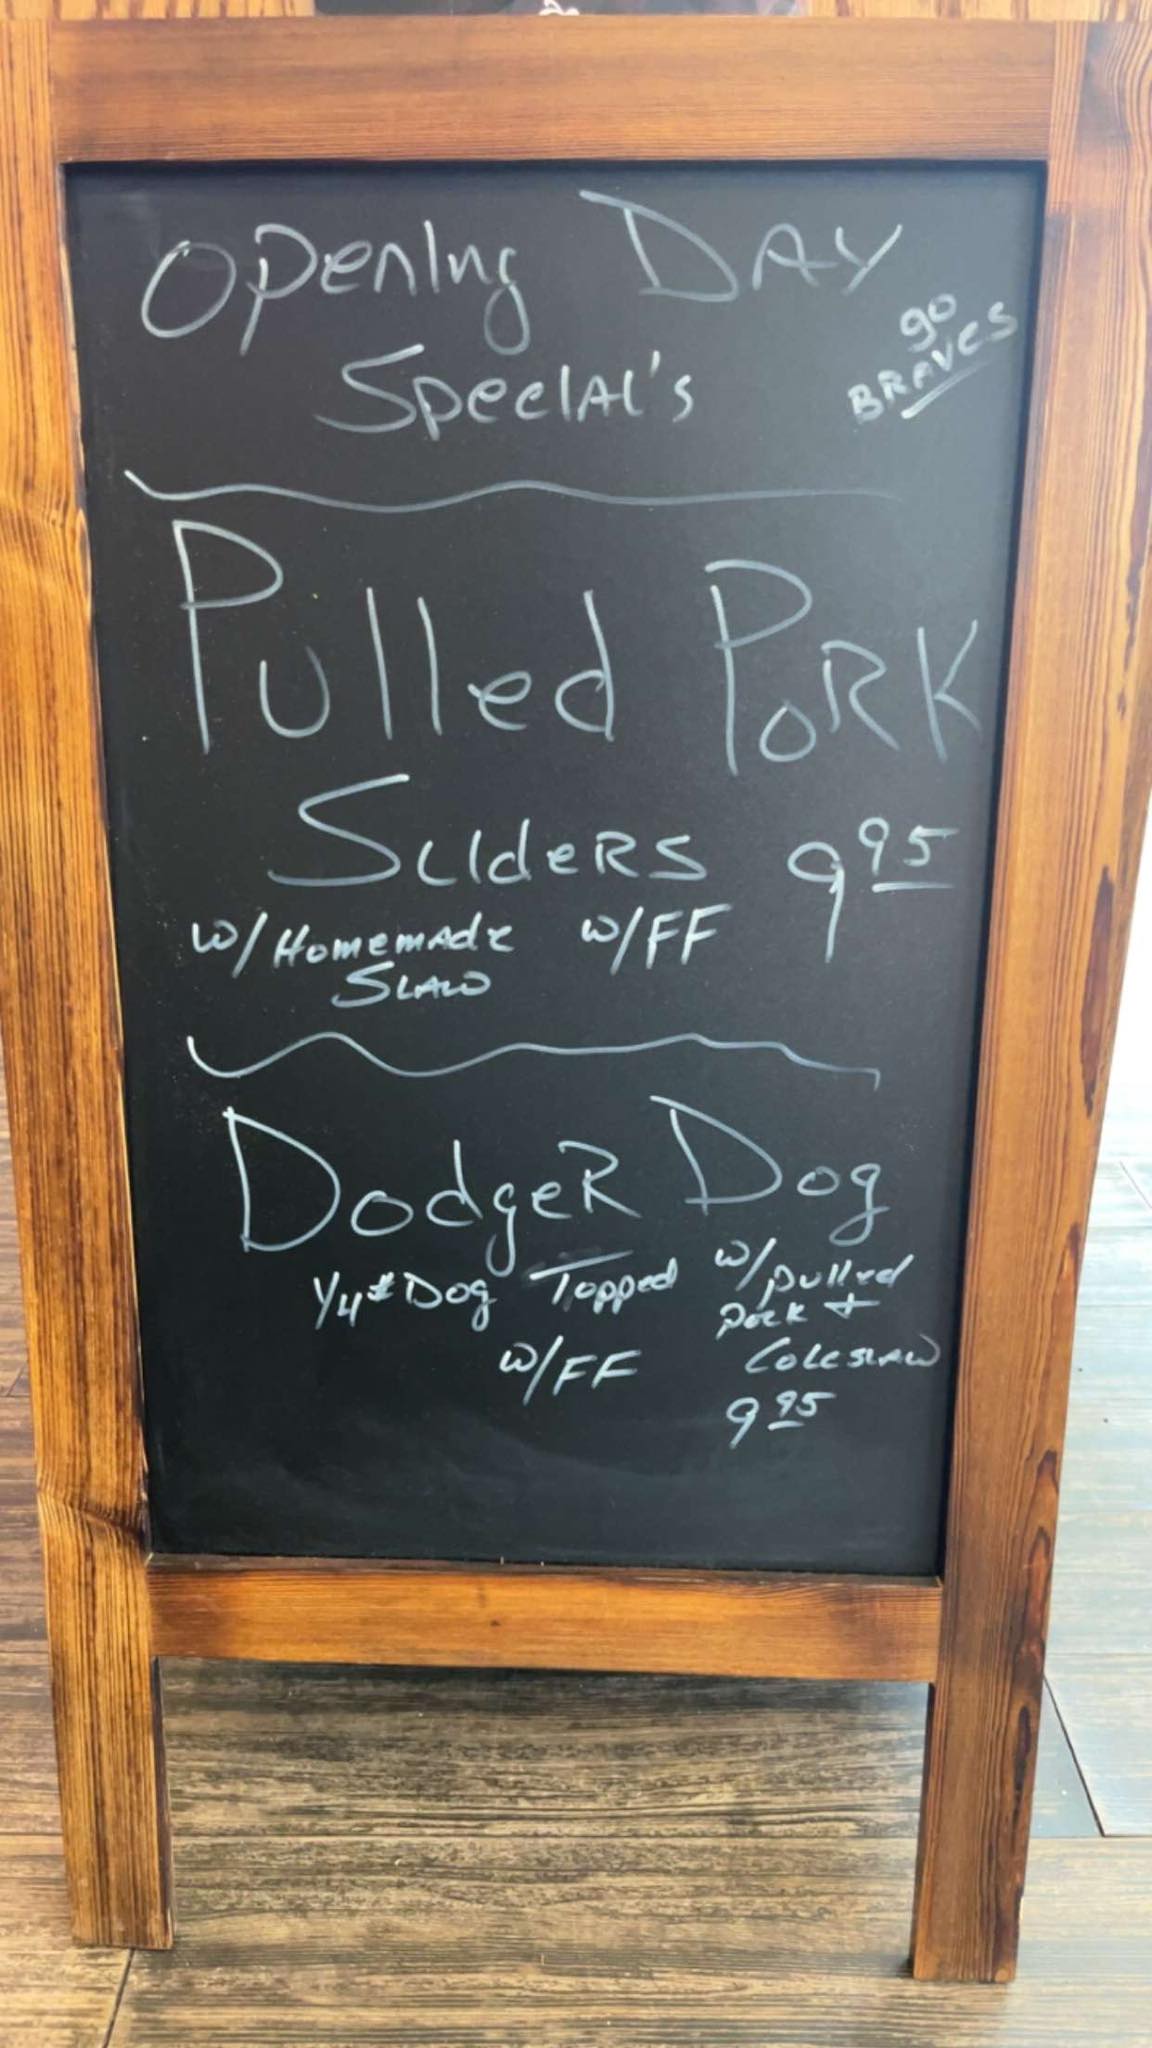 Opening DAY
Special's
go
BRAVES
Pulled PORK
SlideRS 9 95
w/Homemade w/FF
SLAW
DodgeR Dog
1/4# Dog Topped w/pulled
pork +
w/FF Coleslaw
9 95